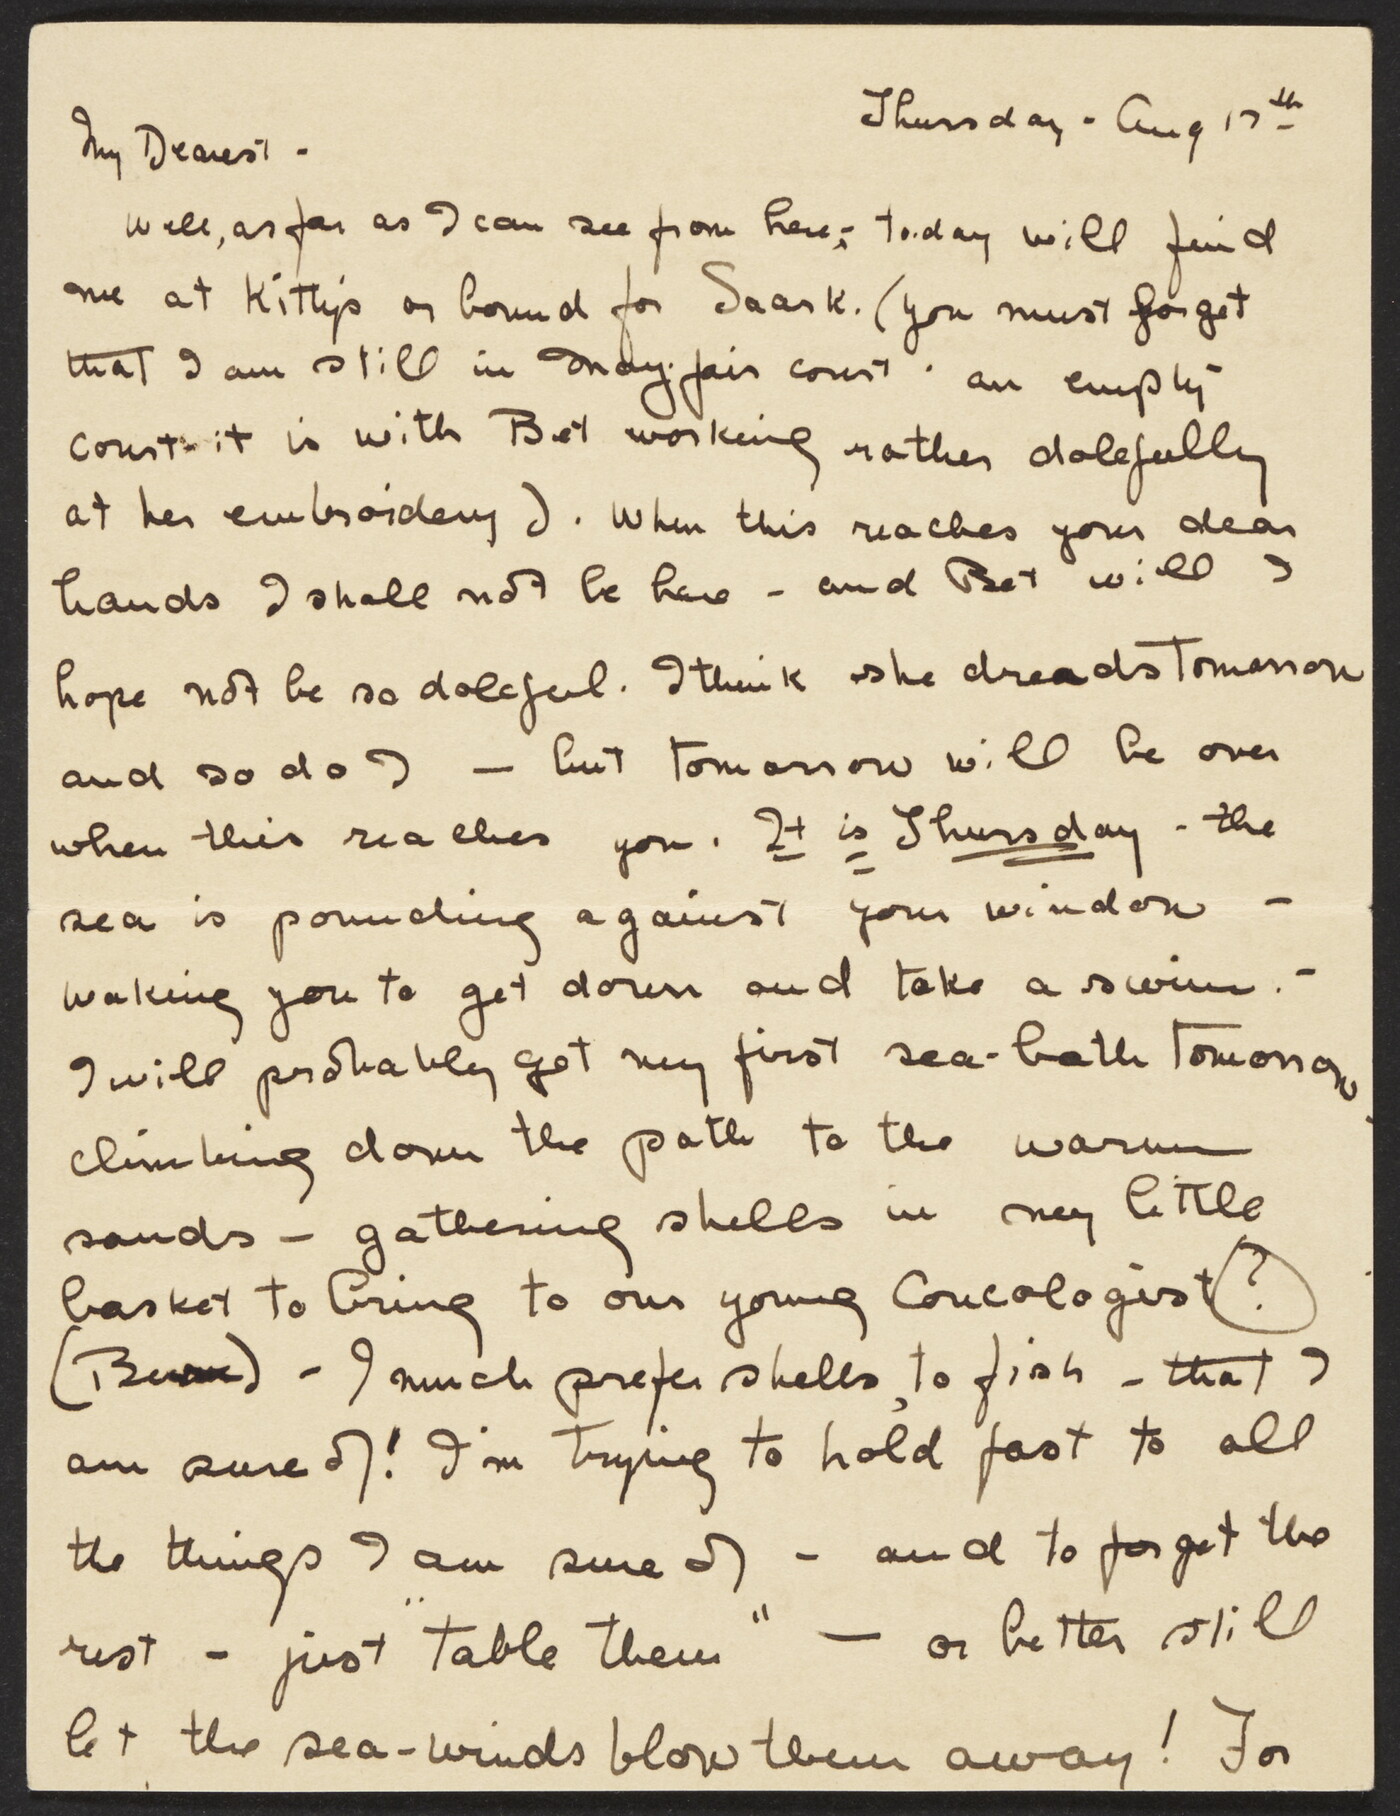 Thursday - Aug 17th
My Dearest -
Well, as far as I can see from here, - today will find
me at Kitty's or bound for Saark. (you must forget
that I am still in Mayfair court - an empty
court - it is with Bet working rather dolefully
at her embroidery). When this reaches your dear
hands I shall not be here - and Bet will I
hope not be so doleful. I think she dreads tomorrow
and so do I — but tomorrow will be over
when this reaches you. It is Thursday - the
sea is pounding against your window -
waking you to get down and take a swim. -
I will probably get my first sea-bath tomorrow,
climbing down the path to the warm
sands - gathering shells in my little
basket to bring to our young Concologist (?)
- I much prefer shells, to fish - that I
am sure of! I'm trying to hold fast to all
the things I am sure of - and to forget the
rest - just "table them" — or better still
let the sea-winds blow them away! For